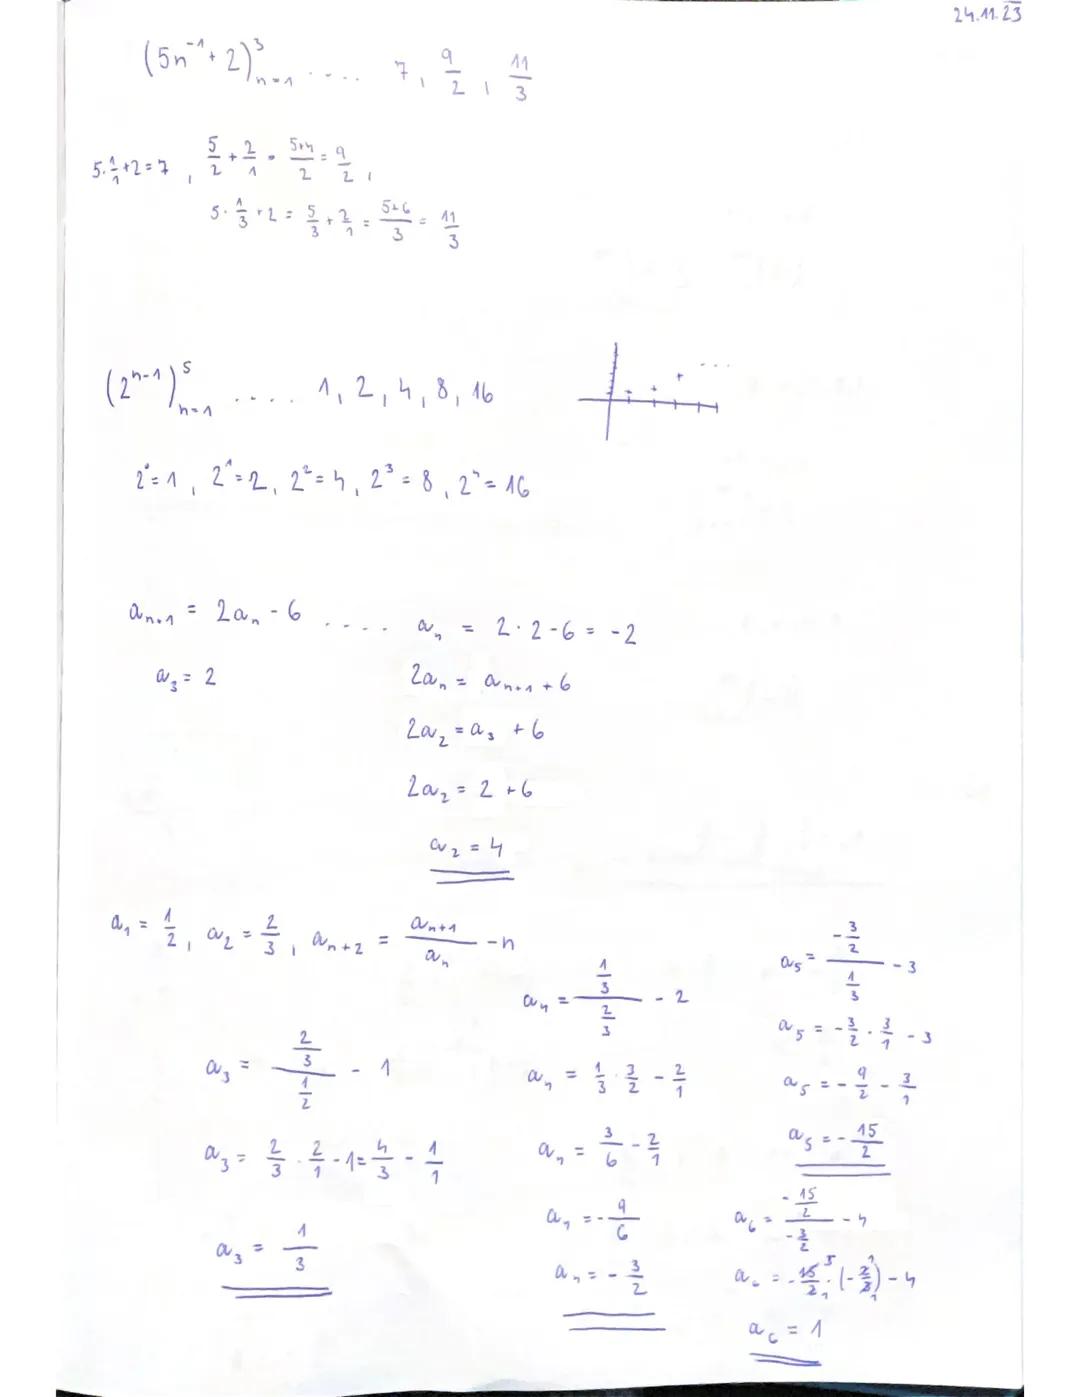 24.11.23
(5n⁻¹ + 2)³ₙ₌₁ .... 7, 9/2, 11/3
5·1/1+2=7, 5/2 + 2/1 = 5+4/2 = 9/2,
5·1/3+2 = 5/3 + 2/1 = 5+6/3 = 11/3
(2ⁿ⁻¹)⁵ₙ₌₁ .... 1, 2, 4, 8, 16
2⁰=1, 2¹=2, 2²=4, 2³=8, 2⁴=16
aₙ₊₁ = 2aₙ - 6 .... a₄ = 2·2-6 = -2
a₃ = 2
2aₙ = aₙ₊₁ + 6
2a₂ = a₃ + 6
2a₂ = 2 + 6
a₂ = 4
a₁ = 1/2, a₂ = 2/3, aₙ₊₂ = aₙ₊₁/aₙ - n
a₃ = (2/3)/(1/2) - 1
a₃ = 2/3 · 2/1 - 1 = 4/3 - 1/1
a₃ = 1/3
a₄ = (1/3)/(2/3) - 2
a₄ = 1/3 · 3/2 - 2/1
a₄ = 3/6 - 2/1
a₄ = - 9/6
a₄ = - 3/2
a₅ = (-3/2)/(1/3) - 3
a₅ = - 3/2 · 3/1 - 3
a₅ = - 9/2 - 3/1
a₅ = - 15/2
a₆ = (-15/2)/(-3/2) - 4
a₆ = - 15/2 · (- 2/3) - 4
a₆ = 1